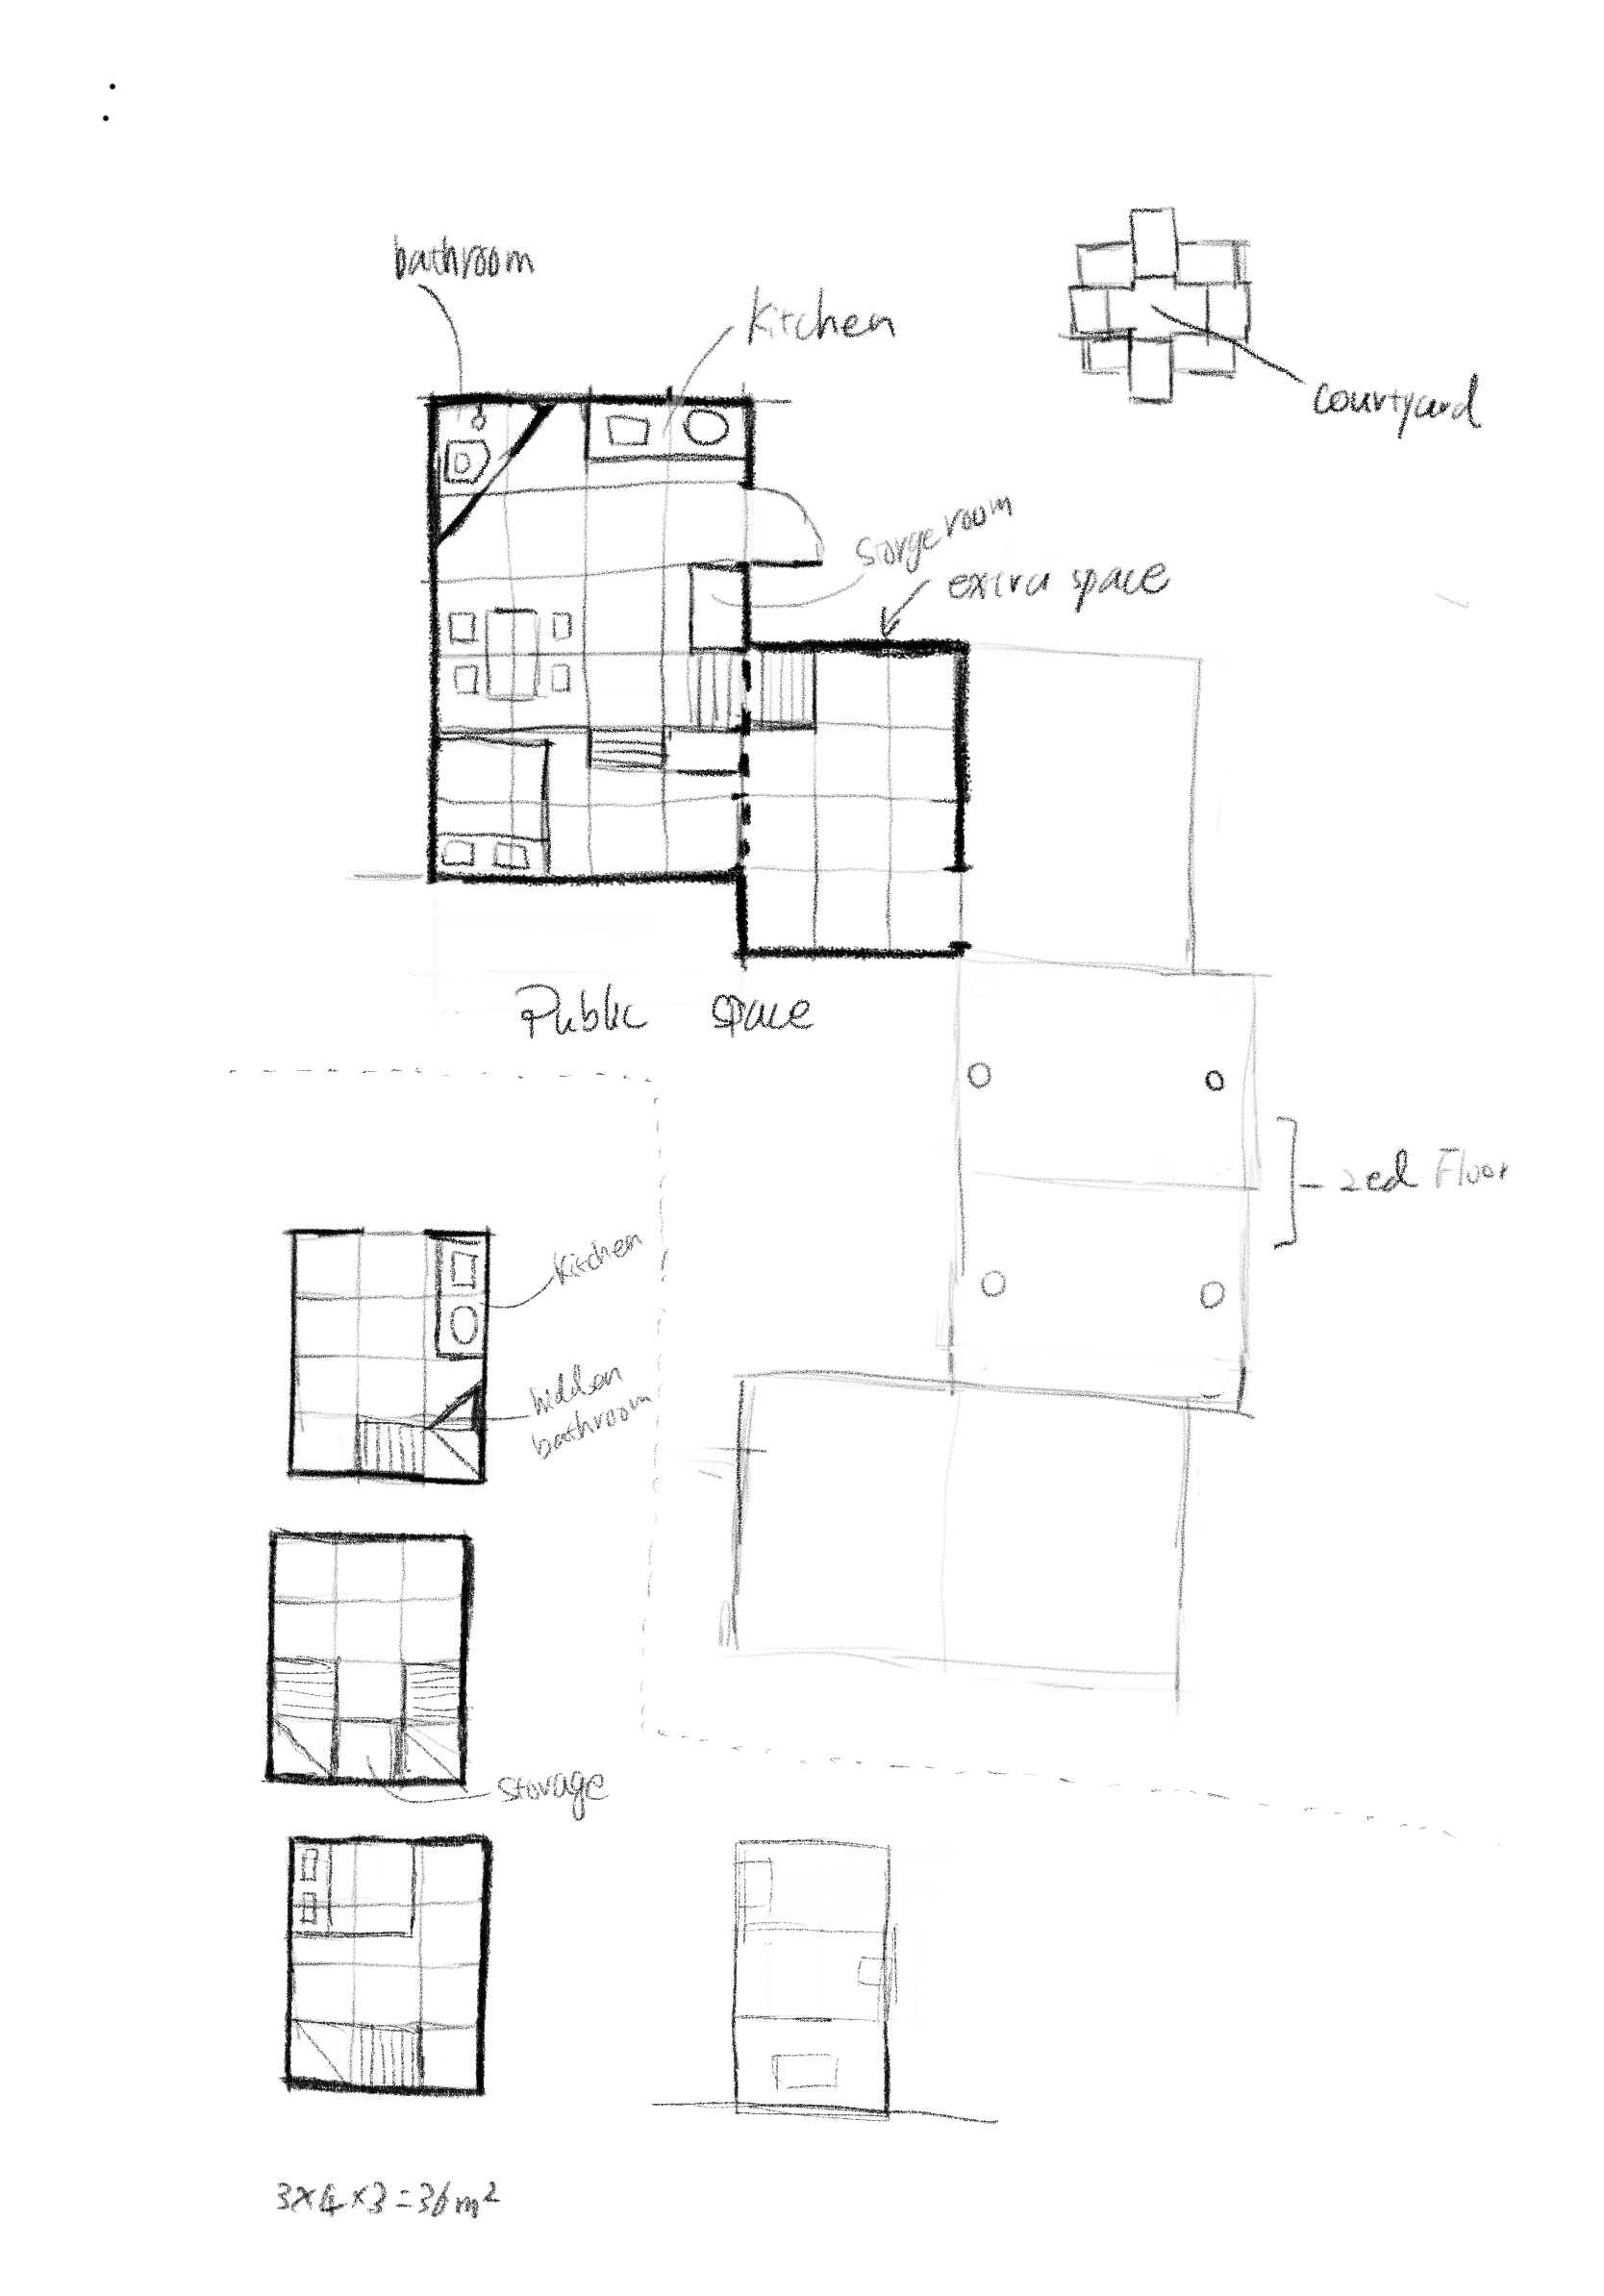 bathroom
Kitchen
courtyard
Storge room
extra space
Public space
2ed Floor
Kitchen
hidden
bathroom
Storage
3×4×3=36m²